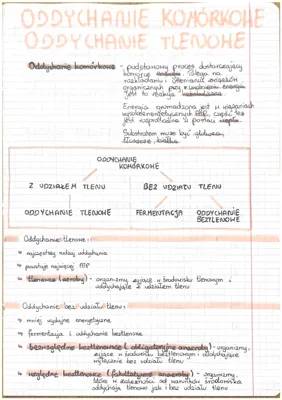 ODDYCHANIE KOMÓRKOWE
ODDYCHANIE TLENOWE
Oddychanie komórkowe - podstawowy proces dostarczający
komórce energię. Polega na
rozkładaniu i utlenianiu związków
organicznych przy uwolnieniu energii
jest to reakcja
Energia gromadzona jest w wiązaniach
wysokoenergetycznych ATP, część też
jest rozproszona w postaci ciepła.
Substratem może być glukoza,
tłuszcze, białka
ODDYCHANIE
KOMÓRKOWE
Z UDZIAŁEM TLENU BEZ UDZIAŁU TLENU
ODDYCHANIE TLENOWE FERMENTACJA ODDYCHANIE
BEZTLENOWE
Oddychanie tlenowe:
najczęstszy rodzaj oddychania
powstaje najwięcej ATP
tlenowce (aeroby) - organizmy żyjące w środowisku tlenowym i
oddychające z udziałem tlenu
Oddychanie bez udziału tlenu:
mniej wydajne energetycznie
fermentacja i oddychanie beztlenowe
bezwzględne beztlenowce (obligatoryjne anaeroby) - organizmy,
żyjące w środowisku beztlenowym i oddychające
wyłącznie bez udziału tlenu
względne beztlenowce (fakultatywne anaeroby) - organizmy,
które w zależności od warunków środowiska
oddychają tlenowo jak i bez udziału tlenu